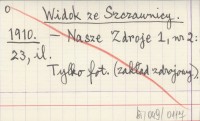 Widok ze Szczawnicy.
1910. - Nasze Zdroje 1, nr 2:
23, il.
Tylko fot. (zakład zdrojowy).